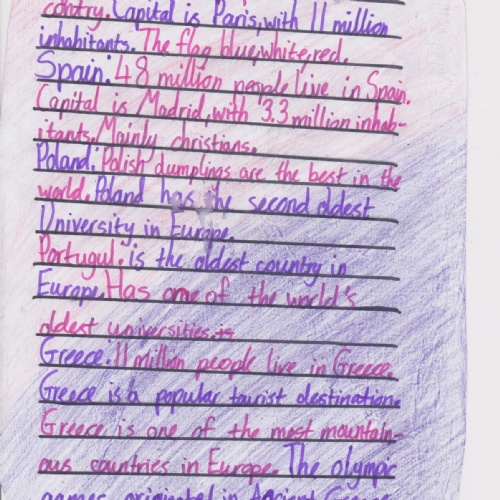 contry. Capital is Paris, with 11 million
inhabitants. The flag blue, white, red.
Spain: 48 million people live in Spain.
Capital is Madrid, with 3.3 million inhab-
itants. Mainly christians.
Poland: Polish dumplings are the best in the
world. Poland has the second oldest
University in Europe.
Portugul. is the oldest country in
Europe. Has one of the world's
oldest universities. is
Greece: 11 million people live in Greece.
Greece is a popular tourist destination.
Greece is one of the most mountain-
ous countries in Europe. The olympic
games originated in Ancient Greece